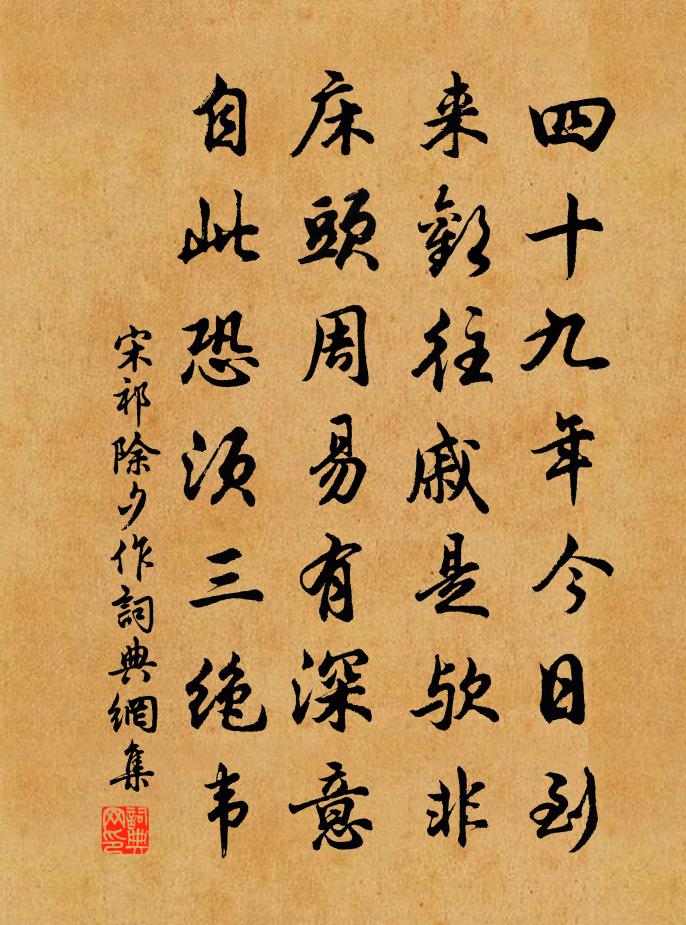 四十九年今日到
来歡往戚是欤非
床頭周易有深意
自此恐须三绝韦
宋祁除夕作詞典網集
詞典
网印